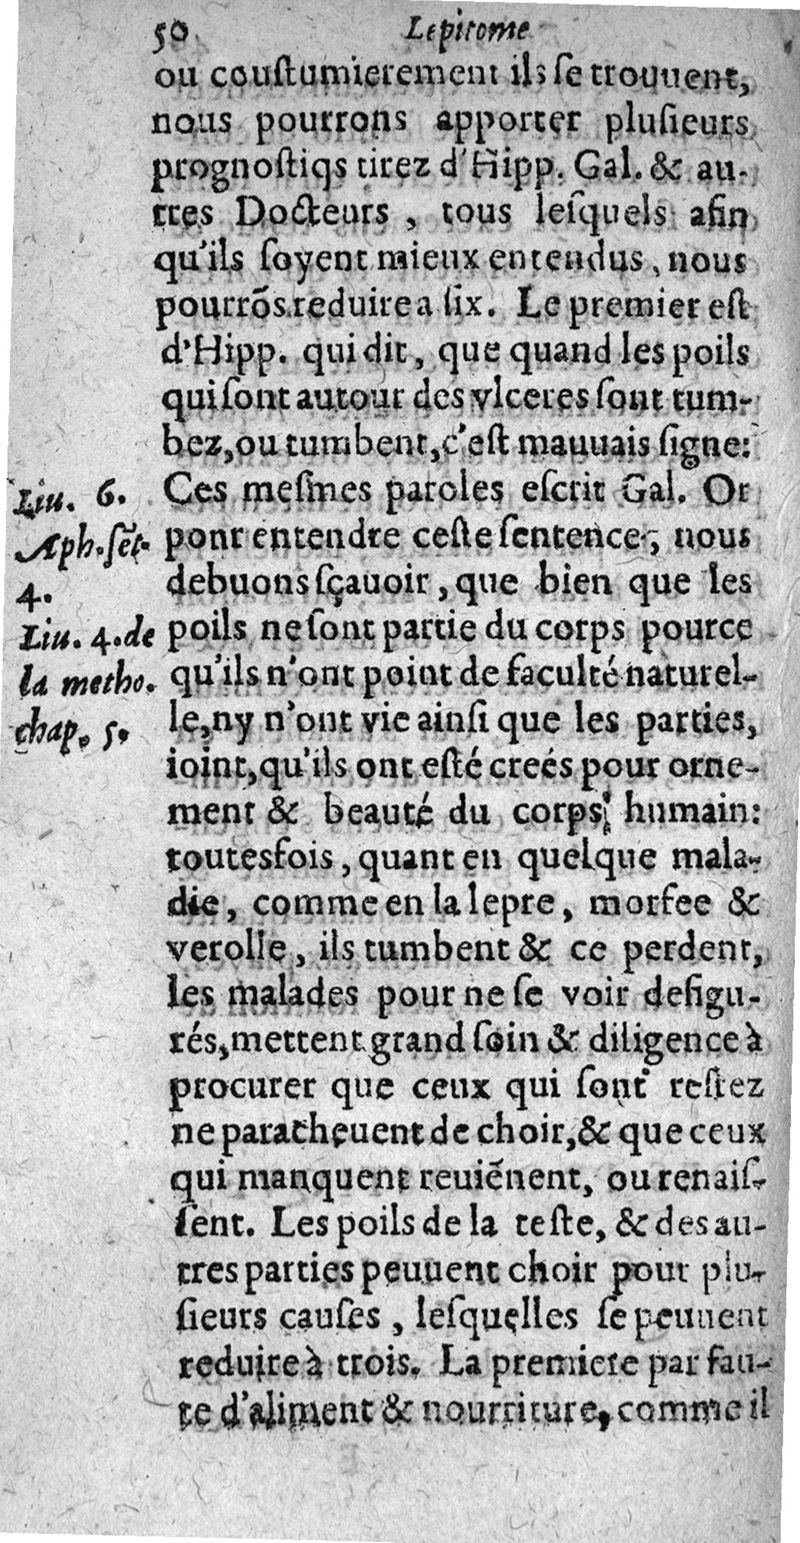 50 Lepitome
ou couſtumierement ils ſe trouuent,
nous pourrons apporter pluſieurs
prognoſtiqs tirez d'Hipp. Gal. & au-
tres Docteurs, tous leſquels afin
qu'ils ſoyent mieux entendus, nous
pourrõs reduire a ſix. Le premier eſt
d'Hipp. qui dit, que quand les poils
qui ſont autour des vlceres ſont tum-
bez, ou tumbent, c'eſt mauuais ſigne:
Ces meſmes paroles eſcrit Gal. Or
ponr entendre ceſte ſentence, nous
debuons ſçauoir, que bien que les
poils ne ſont partie du corps pource
qu'ils n'ont point de faculté naturel-
le, ny n'ont vie ainſi que les parties,
ioint, qu'ils ont eſté creés pour orne-
ment & beauté du corps humain:
toutesfois, quant en quelque mala-
die, comme en la lepre, morfee &
verolle, ils tumbent & ce perdent,
les malades pour ne ſe voir deſigu-
rés, mettent grand ſoin & diligence à
procurer que ceux qui ſont reſtez
ne paracheuent de choir, & que ceux
qui manquent reuiẽnent, ou renaiſ-
ſent. Les poils de la teſte, & des au-
tres parties peuuent choir pour plu-
ſieurs cauſes, leſquelles ſe peuuent
reduire à trois. La premiere par fau-
te d'aliment & nourriture, comme il
Liu. 6.
Aph. ſẽt.
4.
Liu. 4. de
la metho.
chap. 5.